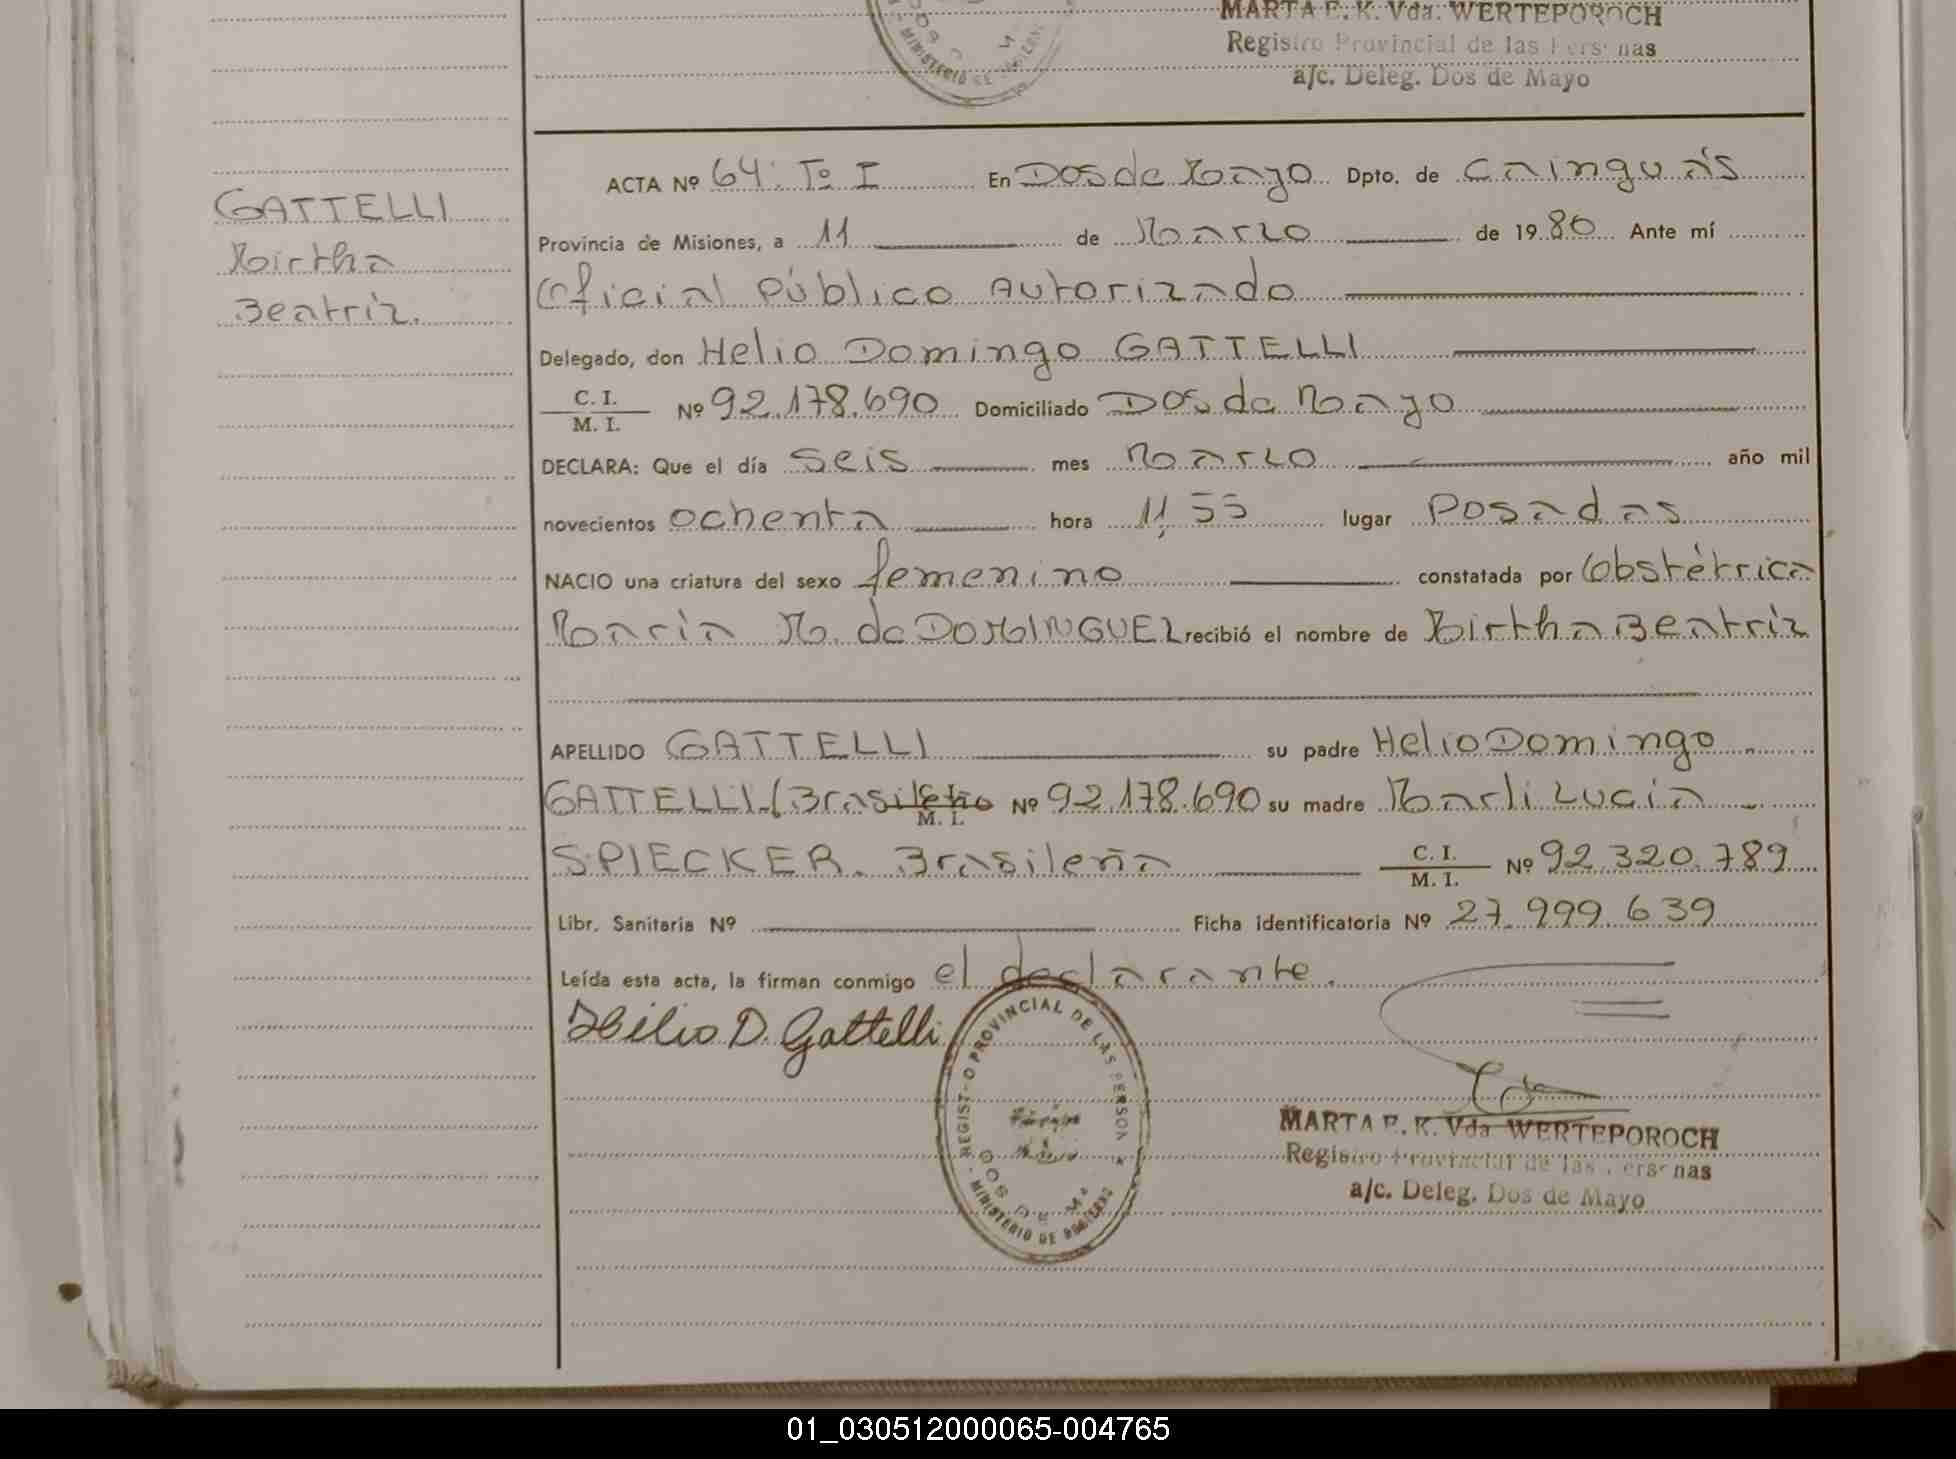 MARTA E. K. Vda. WERTEPOROCH
Registro Provincial de las Personas
a/c. Deleg. Dos de Mayo
GATTELLI
Mirtha
Beatriz.
ACTA Nº 64. Tº I En Dos de Mayo Dpto. de Cainguás
Provincia de Misiones, a 11 de Marzo de 1980 Ante mí
Oficial Público Autorizado
Delegado, don Helio Domingo GATTELLI
C. I. / M. I. Nº 92.178.690 Domiciliado Dos de Mayo
DECLARA: Que el día seis mes Marzo año mil
novecientos ochenta hora 11,55 lugar Posadas
NACIO una criatura del sexo femenino constatada por Obstétrica
María M. de DOMINGUEZ recibió el nombre de Mirtha Beatriz
APELLIDO GATTELLI su padre Helio Domingo
GATTELLI.(Brasileño M. I. Nº 92.178.690 su madre Marli Lucía
SPIECKER. Brasileña C. I. / M. I. Nº 92.320.789
Libr. Sanitaria Nº Ficha identificatoria Nº 27.999.639
Leída esta acta, la firman conmigo el declarante.
Hélio D. Gattelli
REGISTRO PROVINCIAL DE LAS PERSONA
DOS DE MA
MINISTERIO DE GOBIERNO
MARTA E. K. Vda. WERTEPOROCH
Registro Provincial de las Personas
a/c. Deleg. Dos de Mayo
01_030512000065-004765